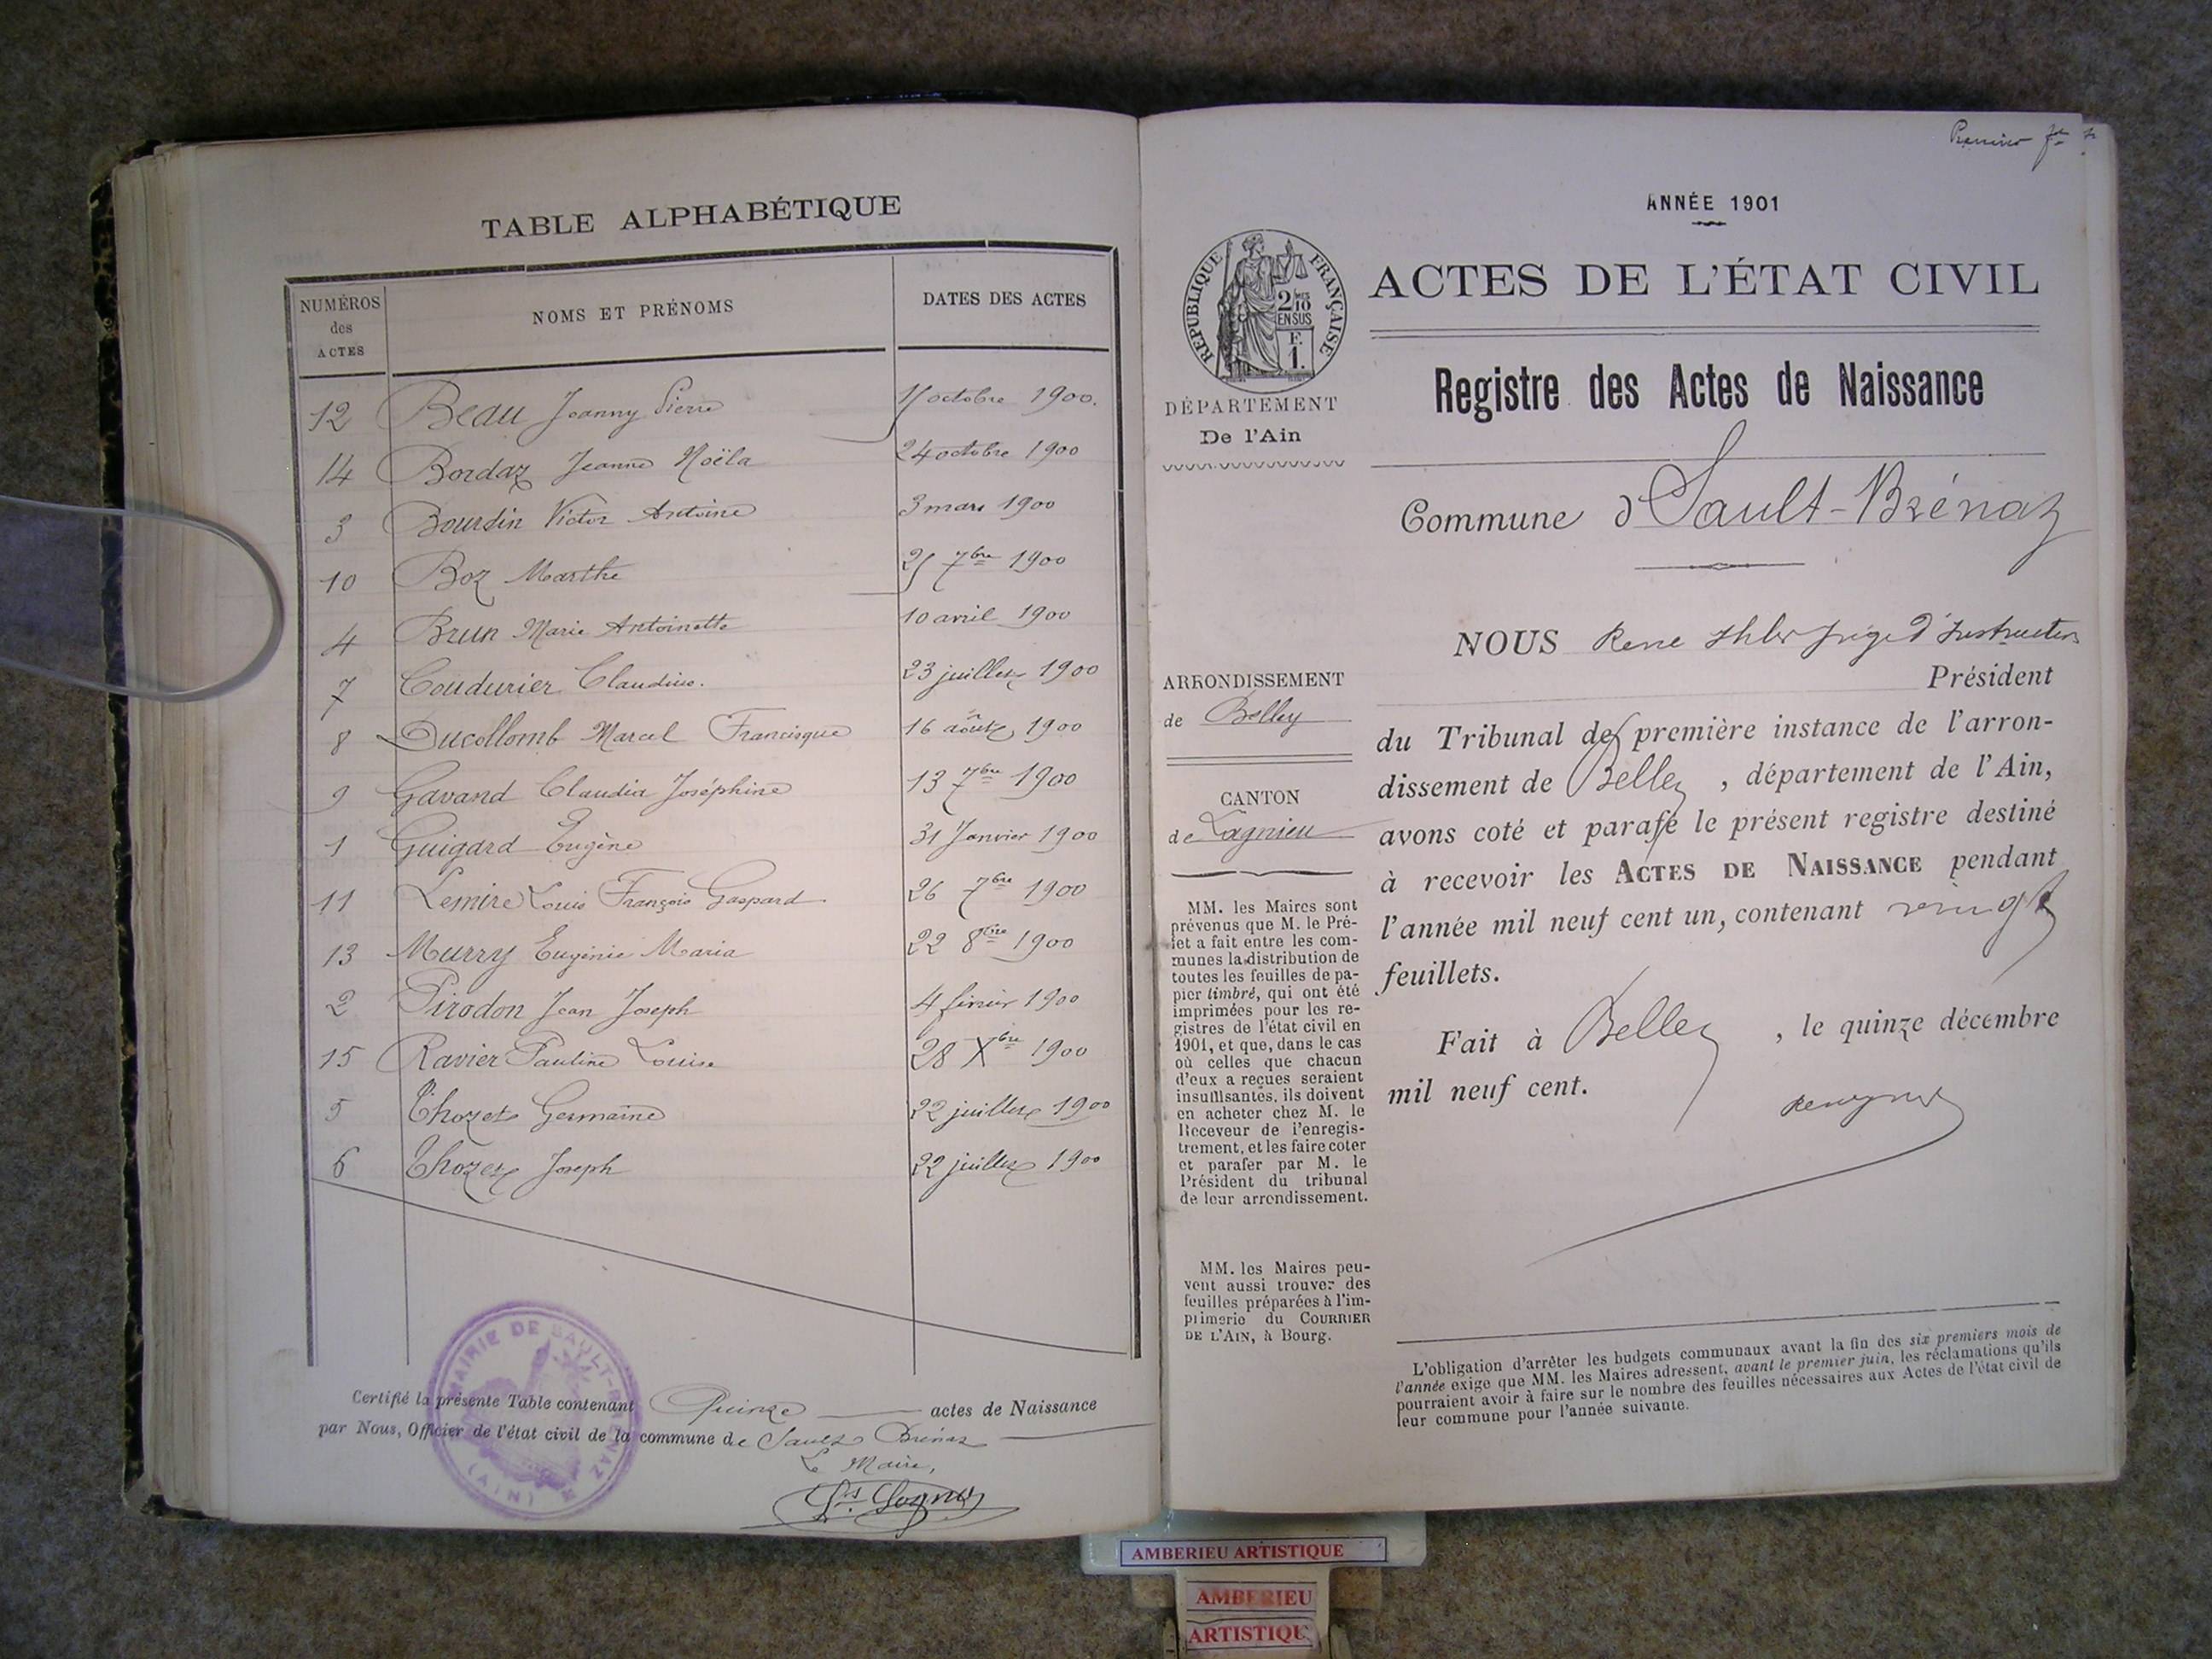 TABLE ALPHABÉTIQUE
NUMÉROS des ACTES NOMS ET PRÉNOMS DATES DES ACTES
12 Beau Joanny Pierre octobre 1900.
14 Bordaz Jeanne Noëla 24 octobre 1900
3 Bourdin Victor Antoine 3 mars 1900
10 Boz Marthe 7bre 1900
4 Brun Marie Antoinette 10 avril 1900
7 Coudurier Claudius. 23 juillet 1900
8 Ducollomb Marcel Francisque 16 août 1900
9 Gavand Claudia Joséphine 13 7bre 1900
1 Guigard Eugène 31 Janvier 1900
11 Lemire Louis François Gaspard 26 7bre 1900
13 Murry Eugénie Maria 22 8bre 1900
2 Pirodon Jean Joseph 4 février 1900
15 Ravier Pauline Louise 28 Xbre 1900
5 Thozet Germaine 22 juillet 1900
6 Thozet Joseph 22 juillet 1900
Certifié la présente Table contenant Quinze actes de Naissance
par Nous, Officier de l'état civil de la commune de Sault Brénaz
Le Maire,
MAIRIE DE SAULT-BRÉNAZ
(AIN)
Premier
ANNÉE 1901
ACTES DE L'ÉTAT CIVIL
RÉPUBLIQUE FRANÇAISE
2/10 EN SUS
F. 1.
Registre des Actes de Naissance
DÉPARTEMENT
De l'Ain
Commune d Sault-Brénaz
NOUS René juge d'instruction
Président
ARRONDISSEMENT
de Belley
du Tribunal de première instance de l'arron-
dissement de Belley, département de l'Ain,
CANTON
de Lagnieu
avons coté et parafé le présent registre destiné
à recevoir les ACTES DE NAISSANCE pendant
l'année mil neuf cent un, contenant vingt
feuillets.
Fait à Belley, le quinze décembre
mil neuf cent.
MM. les Maires sont
prévenus que M. le Pré-
fet a fait entre les com-
munes la distribution de
toutes les feuilles de pa-
pier timbré, qui ont été
imprimées pour les re-
gistres de l'état civil en
1901, et que, dans le cas
où celles que chacun
d'eux a reçues seraient
insuffisantes, ils doivent
en acheter chez M. le
Receveur de l'enregis-
trement, et les faire coter
et parafer par M. le
Président du tribunal
de leur arrondissement.
MM. les Maires peu-
vent aussi trouver des
feuilles préparées à l'im-
primerie du COURRIER
DE L'AIN, à Bourg.
L'obligation d'arrêter les budgets communaux avant la fin des six premiers mois de
l'année exige que MM. les Maires adressent, avant le premier juin, les réclamations qu'ils
pourraient avoir à faire sur le nombre des feuilles nécessaires aux Actes de l'état civil de
leur commune pour l'année suivante.
AMBERIEU ARTISTIQUE
AMBERIEU
ARTISTIQUE